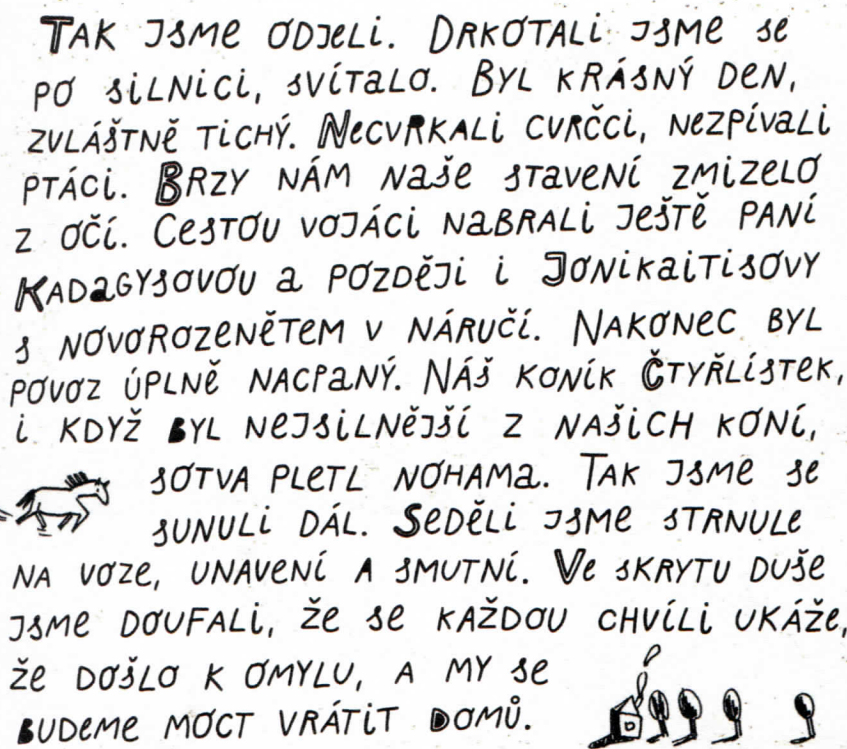 Tak jsme odjeli. Drkotali jsme se
po silnici, svítalo. Byl krásný den,
zvláštně tichý. Necvrkali cvrčci, nezpívali
ptáci. Brzy nám naše stavení zmizelo
z očí. Cestou vojáci nabrali ještě paní
Kadagysovou a později i Jonikaitisovy
s novorozenětem v náručí. Nakonec byl
povoz úplně nacpaný. Náš koník Čtyřlístek,
i když byl nejsilnější z našich koní,
sotva pletl nohama. Tak jsme se
sunuli dál. Seděli jsme strnule
na voze, unavení a smutní. Ve skrytu duše
jsme doufali, že se každou chvíli ukáže,
že došlo k omylu, a my se
budeme moct vrátit domů.